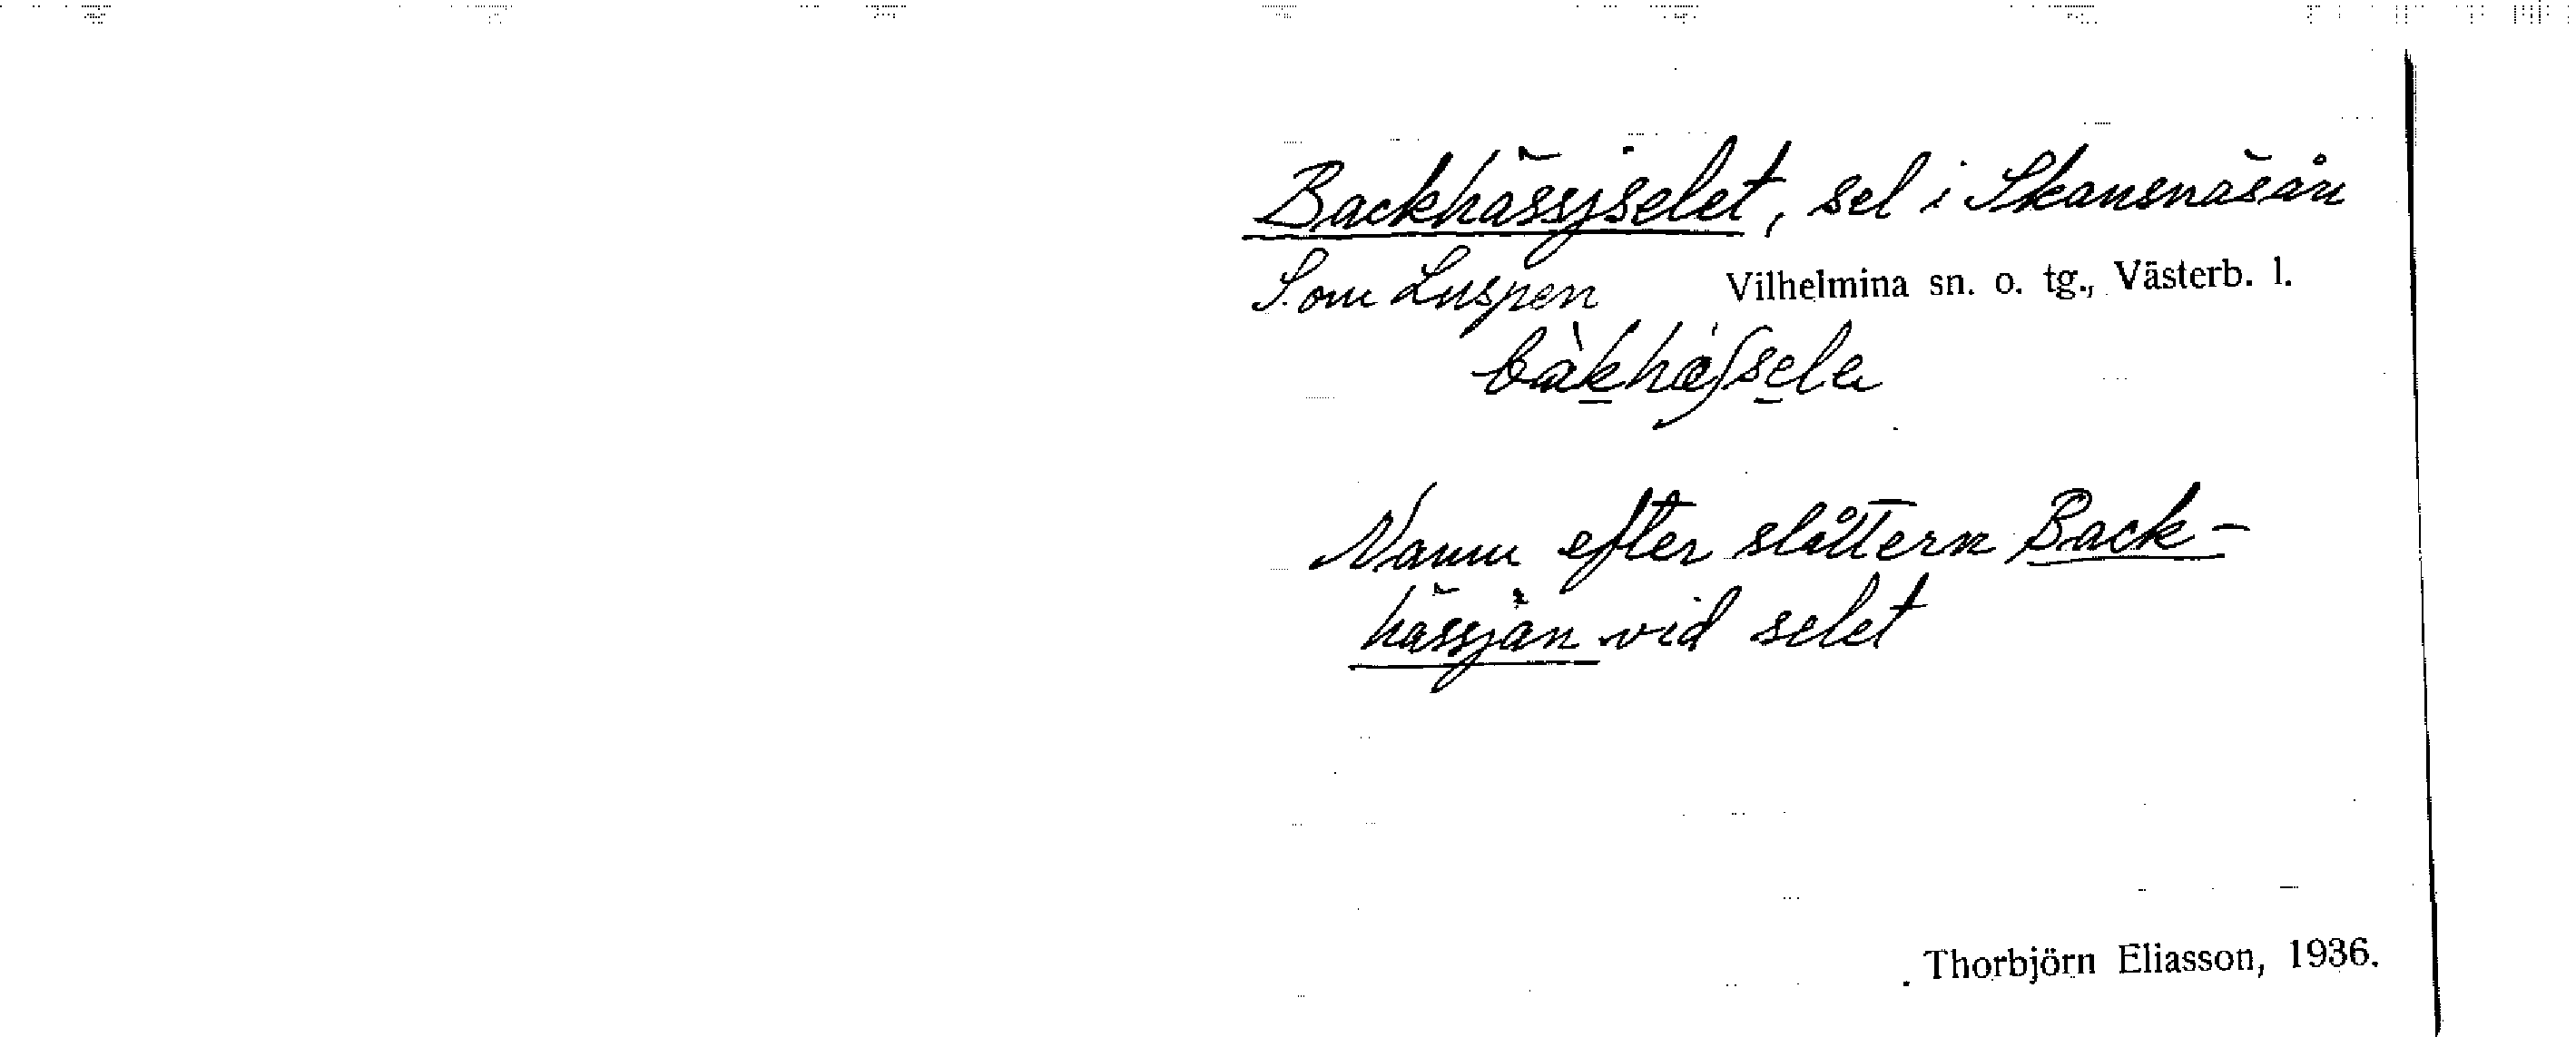 Backhässjselet, sel i Skansnäsån
S. om Luspen Vilhelmina sn. o. tg., Västerb. l.
Namn efter slåttern Back-
hässjan vid selet
Thorbjörn Eliasson, 1936.